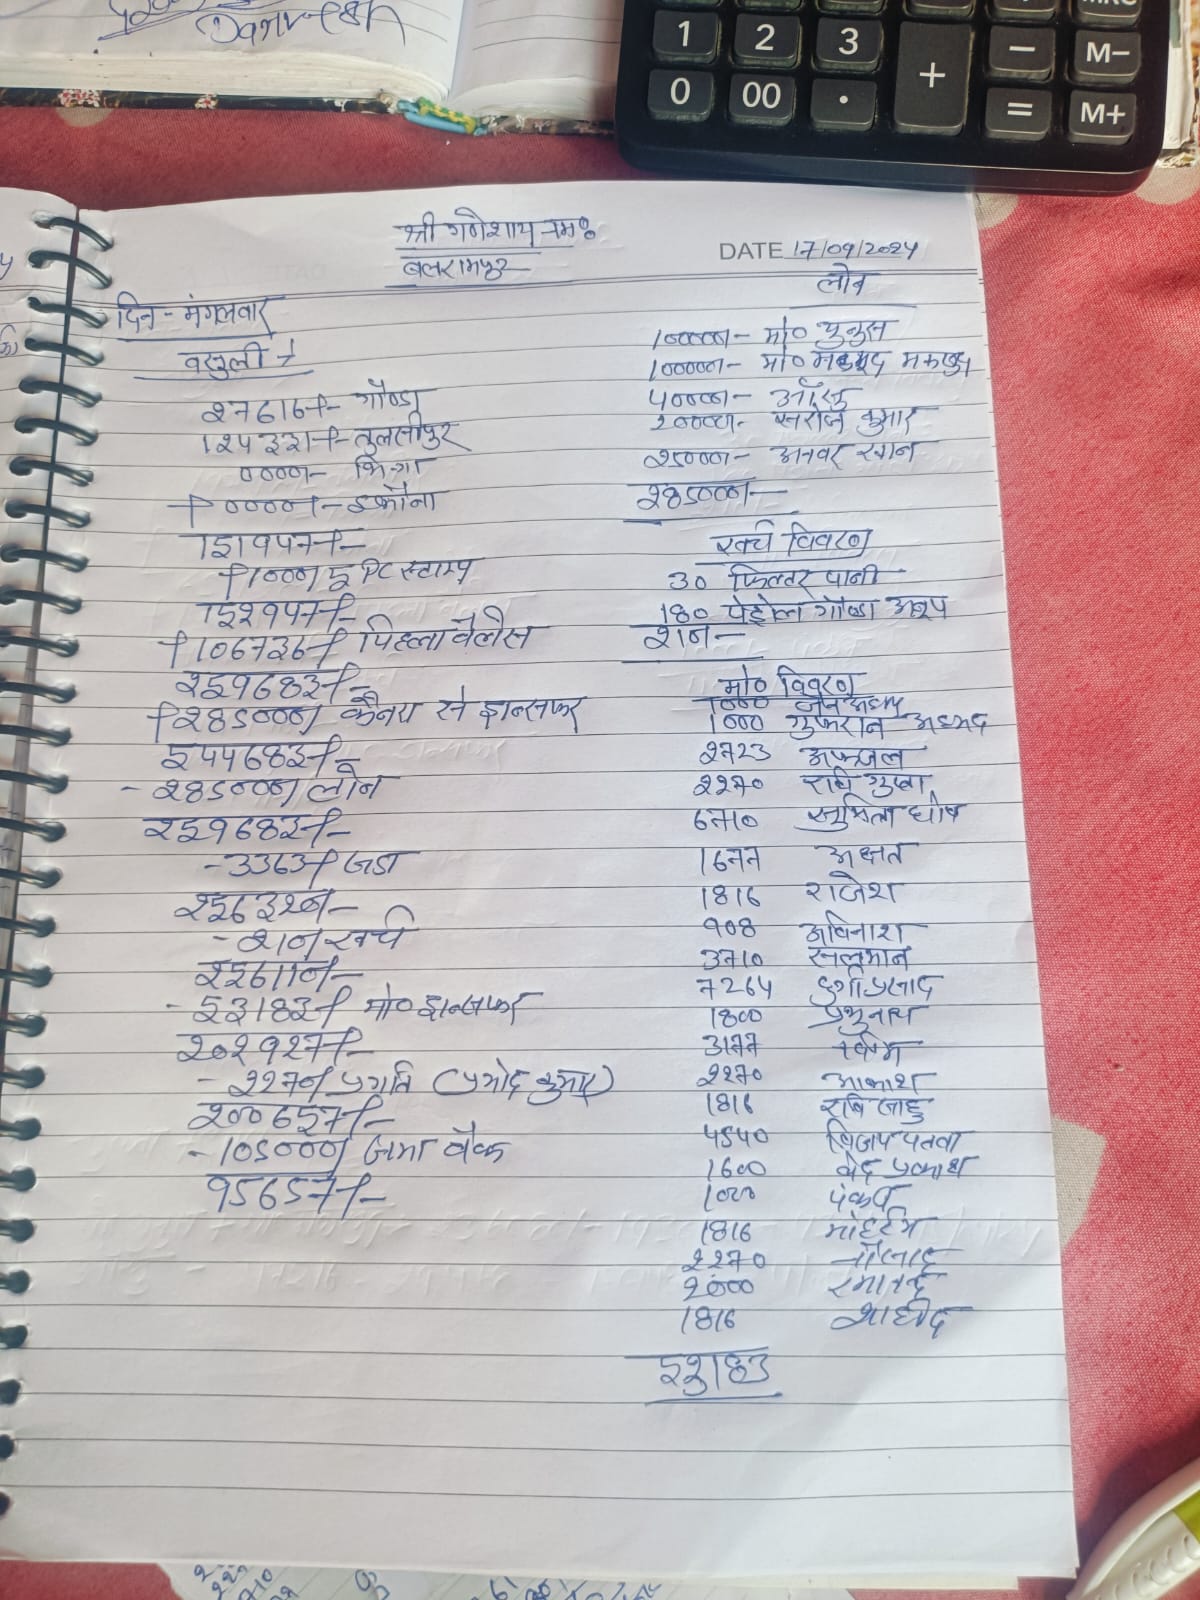 Danish
1 2 3 + − M−
0 00 . = M+
श्री गणेशाय नमः
बलरामपुर
DATE 17/09/2024
दिन - मंगलवार
वसुली
27616/- गोण्डा
124331/- तुलसीपुर
0000/-
+ 0000/- इकौना
151947/-
+1000/ 5 PC स्टाम्प
152947/-
+106736/ पिछला वैलेंस
259683/-
+285000/ कैनरा से ट्रान्सफर
544683/-
- 285000/ लोन
259683/-
- 3363/
256320/-
- 210/ खर्च
256110/-
- 53183/ मो० ट्रान्सफर
202927/-
- 2270/ प्रगति (प्रमोद कुमार)
200657/-
- 105000/ जमा बैंक
95657/-
लोन
100000/- मो० युनुस
100000/- मो०
40000/-
20000/- सरोज कुमार
25000/- अनवर खान
285000/-
खर्च विवरण
30 फिल्टर पानी
180 पेट्रोल गोण्डा
210/-
मो० विवरण
1000
1000 गुफरान अहमद
2723 अफजल
2270 रवि गुप्ता
6710 सुमिता घोष
1677 अक्षत
1816 राजेश
908 अविनाश
3710 सलमान
7264 दुर्गा प्रसाद
1800 प्रभुनाथ
3177
2270 आकाश
1816 रवि साहु
4540 विजय
1600 वेद प्रकाश
1000 पंकज
1816 मोहर्रम
2270
2000 रमानन्द
1816 शाहीद
53183